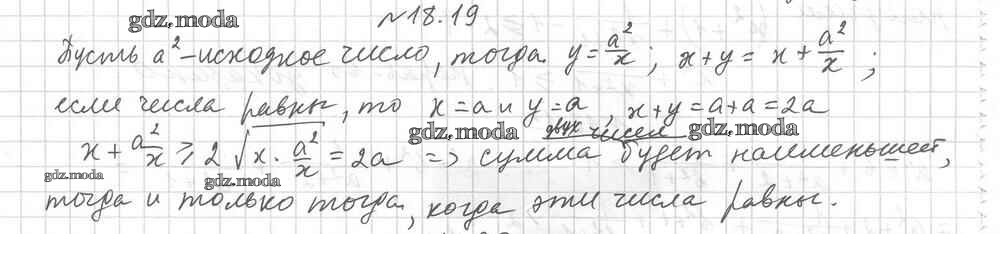 №18.19
gdz.moda
Пусть a² – исходное число, тогда y = a²/x ; x + y = x + a²/x ;
если числа равны, то x = a и y = a, x + y = a + a = 2a
gdz.moda двух чисел gdz.moda
x + a²/x ⩾ 2√(x · a²/x) = 2a => сумма будет наименьшей,
gdz.moda gdz.moda
тогда и только тогда, когда эти числа равны.